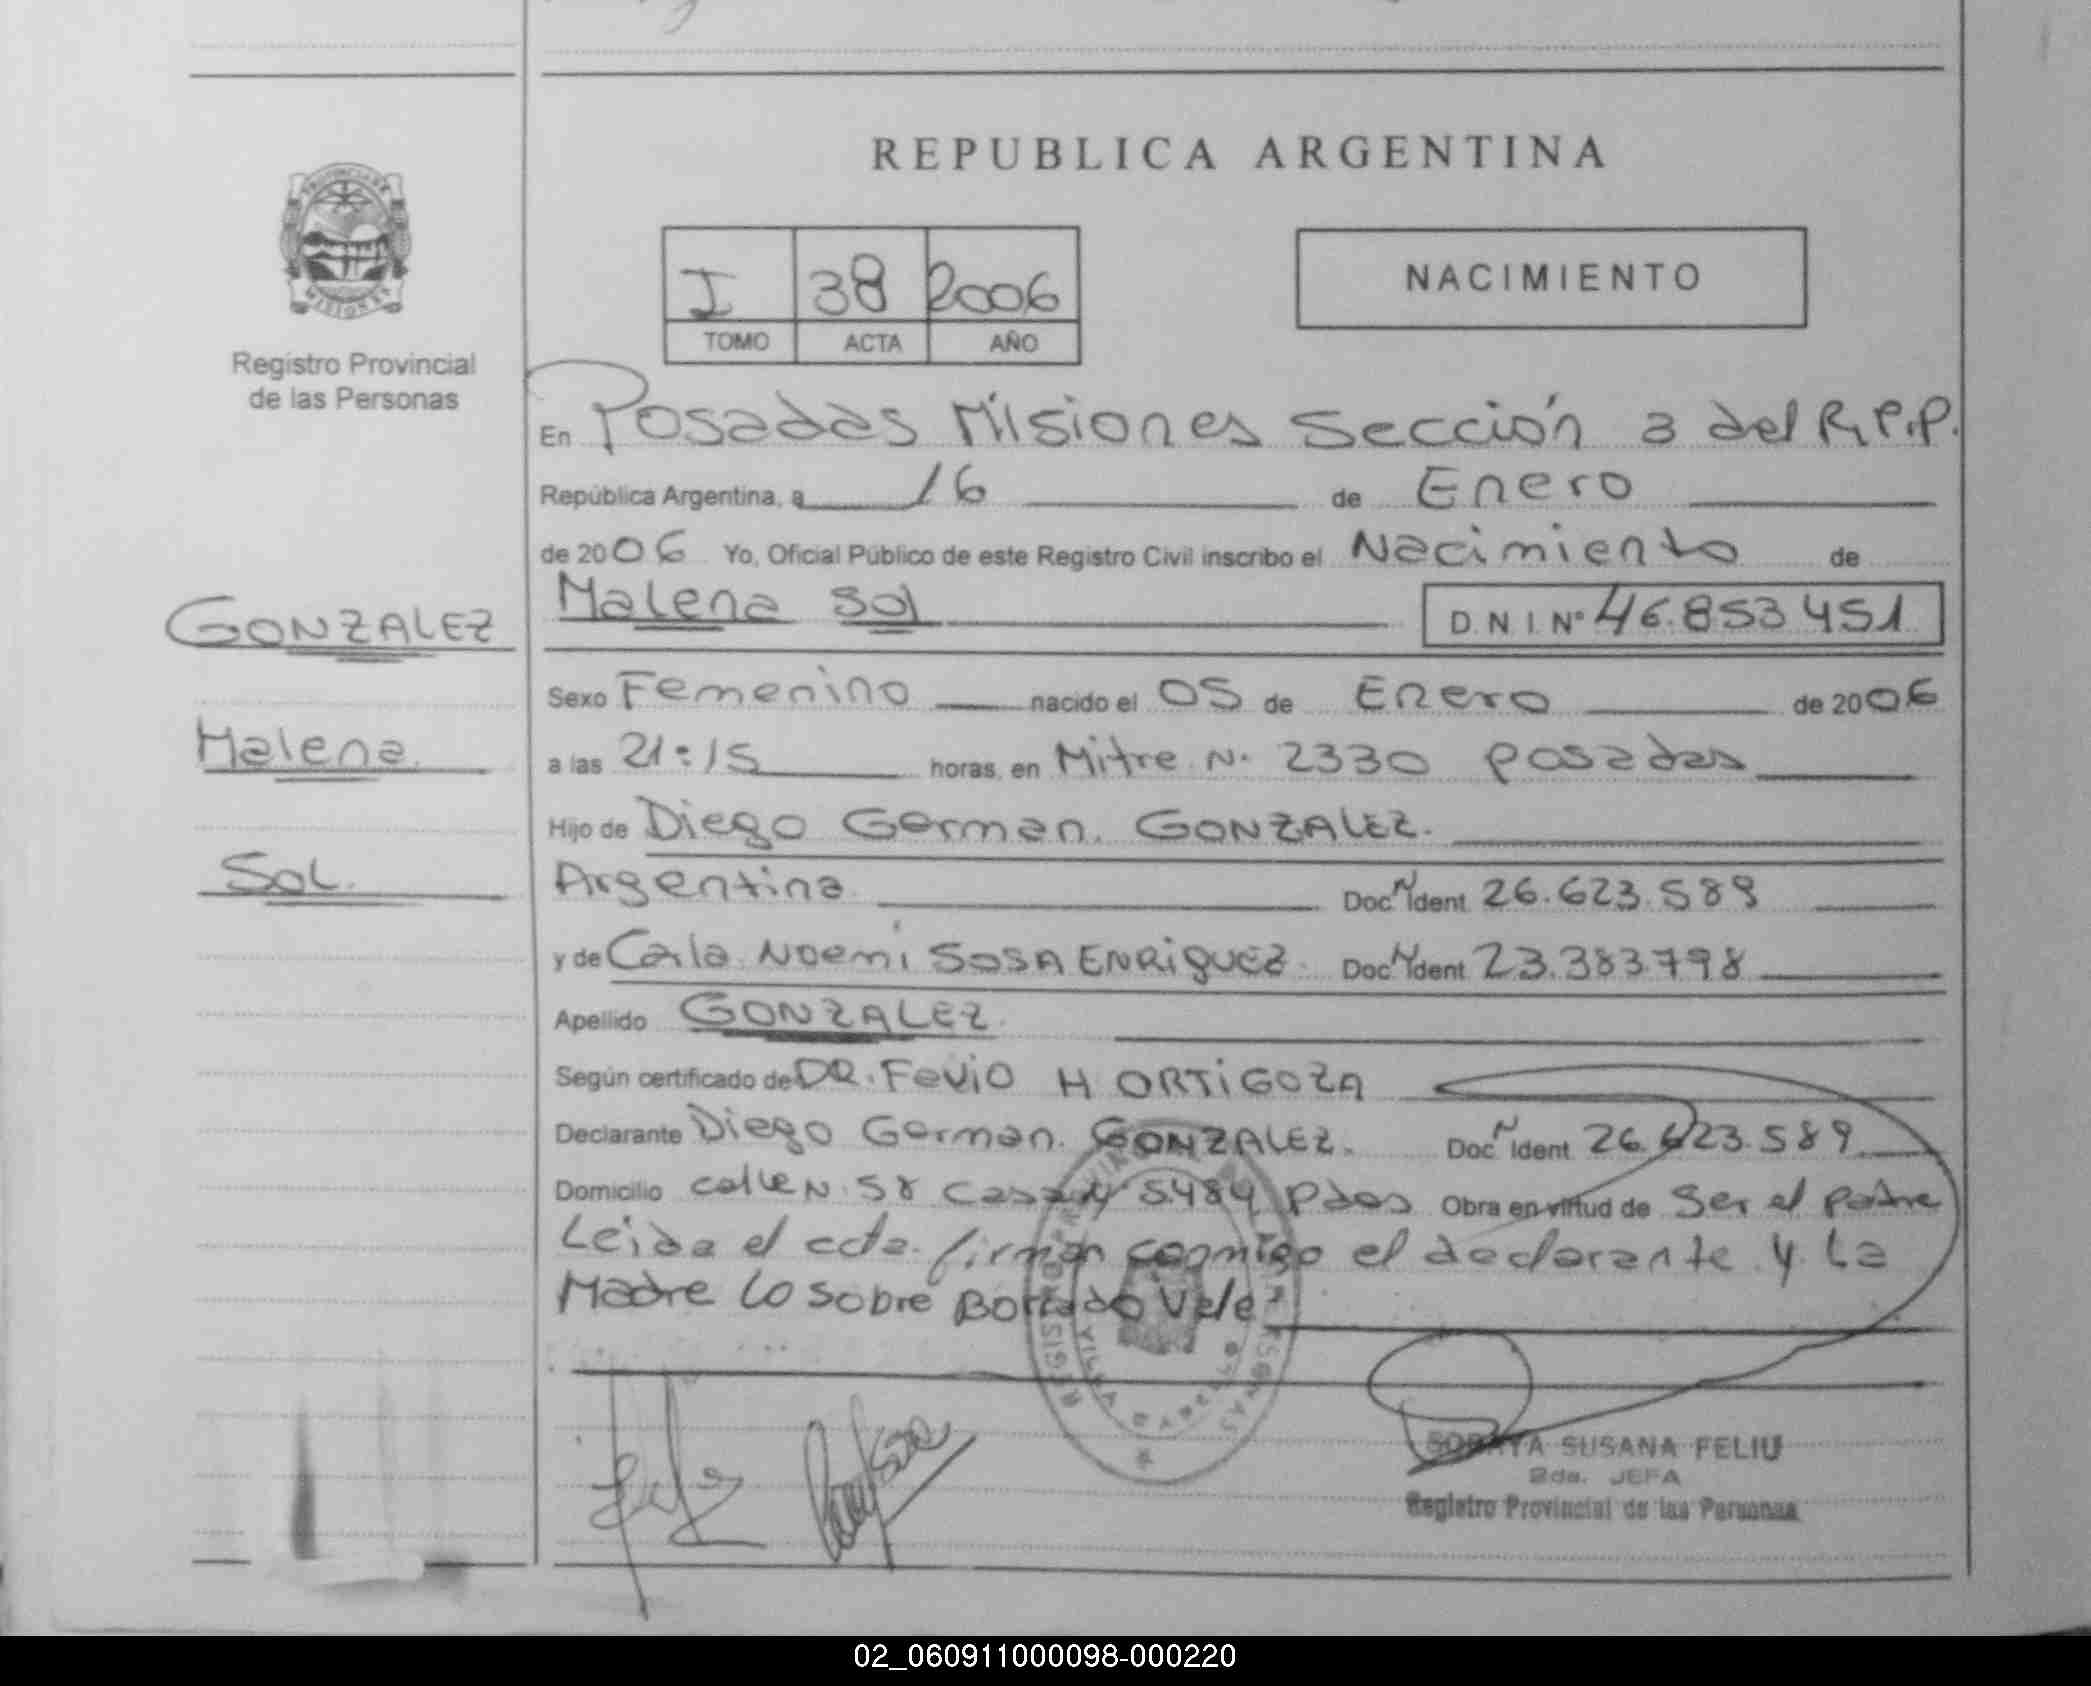 REPUBLICA ARGENTINA
PROVINCIA DE
MISIONES
Registro Provincial
de las Personas
I 38 2006
TOMO ACTA AÑO
NACIMIENTO
En Posadas Misiones Sección 3 del R.P.P.
República Argentina, a 16 de Enero
de 2006 Yo, Oficial Público de este Registro Civil inscribo el Nacimiento de
GONZALEZ
Malena
Sol.
Malena Sol D.N.I. Nº 46.853451
Sexo Femenino nacido el 05 de Enero de 2006
a las 21:15 horas, en Mitre N. 2330 posadas
Hijo de Diego German. GONZALEZ.
Argentina Doc N Ident 26.623.589
y de Carla Noemi SOSA ENRiQUEZ. Doc N Ident 23.383.798
Apellido GONZALEZ.
Según certificado de DR. Fevio H ORTiGOZA
Declarante Diego German. GONZALEZ. Doc N Ident 26.623.589
Domicilio calle N. 58 casa N 5484 Pdas Obra en virtud de Ser el padre
Leida el acta. firman conmigo el declarante y La
Madre Lo sobre Borrado Vale
SORAYA SUSANA FELIU
2da. JEFA
Registro Provincial de las Personas
02_060911000098-000220